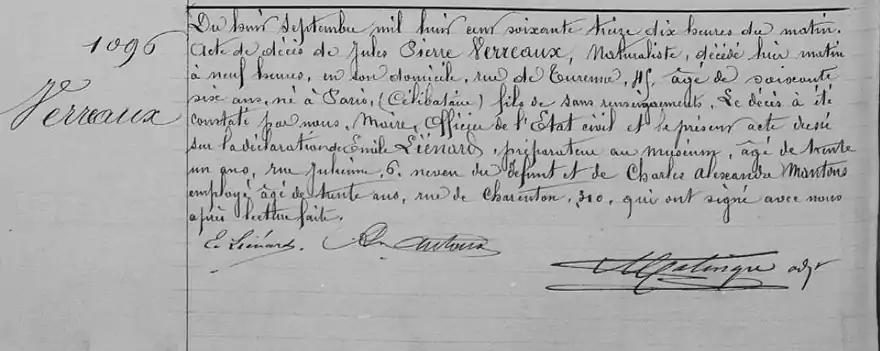 1096
Verreaux
Du huit Septembre mil huit cent soixante treize dix heures du matin.
Acte de décès de Jules Pierre Verreaux, Naturaliste, décédé hier matin
à neuf heures, en son domicile, rue de Turenne, 45, âgé de soixante
six ans, né à Paris, (Célibataire) fils de sans renseignements. Le décès a été
constaté par nous, Maire, Officier de l'Etat civil et le présent acte dressé
sur la déclaration de Emile Liénard, préparateur au muséum, âgé de trente
un ans, rue Julienne, 6, neveu du défunt et de Charles Alexandre
employé âgé de trente ans, rue de Charenton, 310, qui ont signé avec nous
après lecture faite.
E. Liénard.
adjt